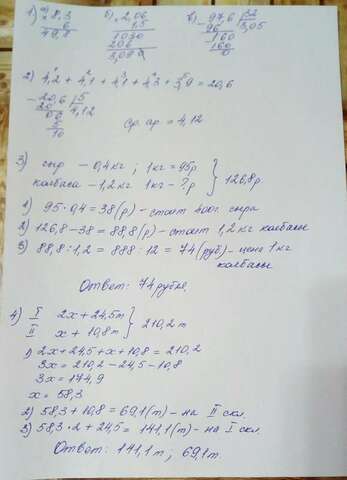 1) а) 8,3 б) 2,06 в) 97,6 | 32
× 6 × 1,5 - 96 3,05
49,8 1030 - 160
206 160
3,090 0
2) 4,2 + 4,1 + 4,1 + 4,3 + 3,9 = 20,6
- 20,6 | 5
20 4,12
Ср. ар. = 4,12
3) сыр - 0,4 кг ; 1 кг = 95р } 126,8р
колбаса - 1,2 кг 1кг - ? р
1) 95 · 0,4 = 38 (р) - стоит 400г. сыра
2) 126,8 - 38 = 88,8 (р) - стоит 1,2 кг колбасы
3) 88,8 : 1,2 = 888 : 12 = 74 (руб) - цена 1 кг
колбасы
Ответ: 74 рубля.
4) I 2x + 24,5т } 210,2 т
II x + 10,8т
1) 2x + 24,5 + x + 10,8 = 210,2
3x = 210,2 - 24,5 - 10,8
3x = 174,9
x = 58,3
2) 58,3 + 10,8 = 69,1 (т) - на II скл.
3) 58,3 · 2 + 24,5 = 141,1 (т) - на I скл.
Ответ: 141,1 т ; 69,1т.